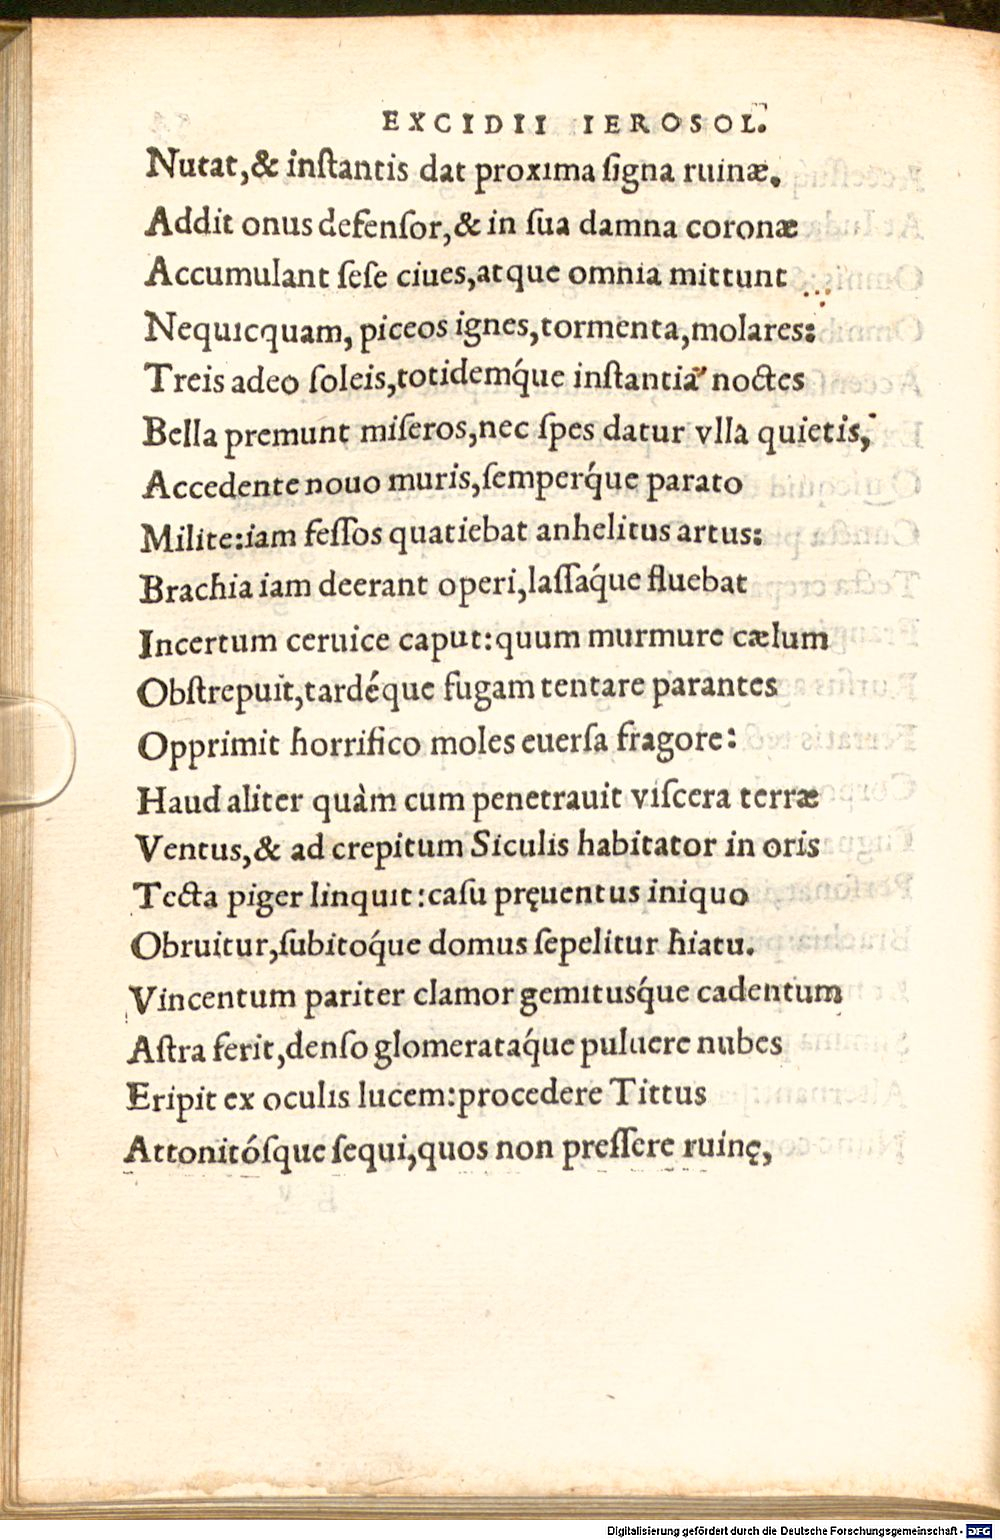 EXCIDII IEROSOL.
Nutat,& inſtantis dat proxima ſigna ruinæ.
Addit onus defenſor,& in ſua damna coronæ
Accumulant ſeſe ciues,atque omnia mittunt
Nequicquam, piceos ignes,tormenta,molares:
Treis adeo ſoleis,totidemq́ue inſtantia noctes
Bella premunt miſeros,nec ſpes datur vlla quietis,
Accedente nouo muris,ſemperq́ue parato
Milite:iam feſſos quatiebat anhelitus artus:
Brachia iam deerant operi,laſſaq́ue fluebat
Incertum ceruice caput:quum murmure cælum
Obſtrepuit,tardéque fugam tentare parantes
Opprimit horrifico moles euerſa fragore:
Haud aliter quàm cum penetrauit viſcera terræ
Ventus,& ad crepitum Siculis habitator in oris
Tecta piger linquit:caſu pręuentus iniquo
Obruitur,ſubitoq́ue domus ſepelitur hiatu.
Vincentum pariter clamor gemituſq́ue cadentum
Aſtra ferit,denſo glomerataq́ue puluere nubes
Eripit ex oculis lucem:procedere Tittus
Attonitóſque ſequi,quos non preſſere ruinę,
Digitalisierung gefördert durch die Deutsche Forschungsgemeinschaft - DFG